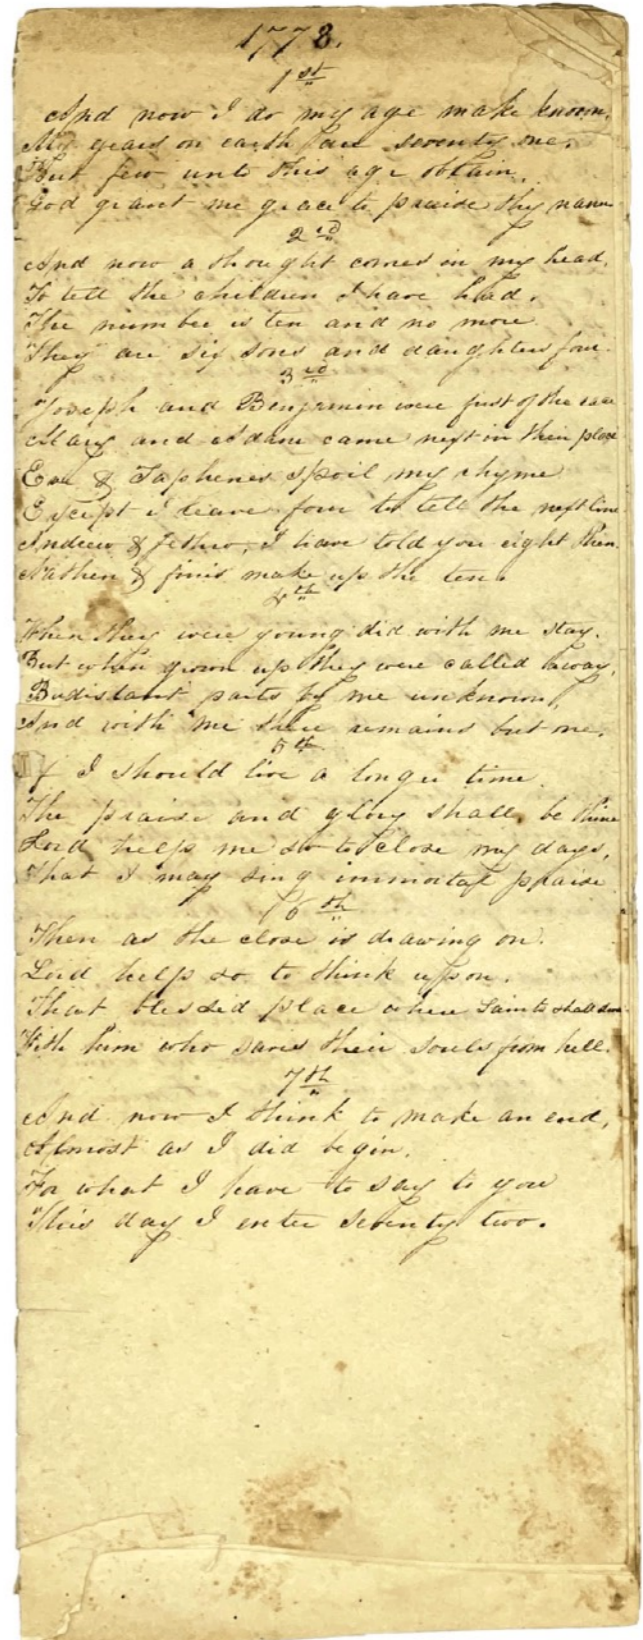 1778.
1st
And now I do my age make known,
My years on earth are seventy one,
But few unto this age obtain,
God grant me grace to praise thy name
2nd
And now a thought comes in my head,
To tell the children I have had,
The number is ten and no more
They are six sons and daughters four.
3rd
Joseph and Benjamin were first of the race
Mary and Adam came next in their place
Eve & Taphenes spoil my rhyme
Except I leave four to tell the next line
Andrew & Jethro, I have told you eight then.
Nathen & finis make up the ten.
4th
When they were young did with me stay.
But when grown up they were called away,
distant parts by me unknown,
And with me there remains but one.
5th
If I should live a longer time
The praise and glory shall be thine
Lord help me so to close my days,
That I may sing immortal praise
6th
Then as the close is drawing on.
Lord help so to think upon.
That blessed place where Saints shall
With him who saves their souls from hell.
7th
And now I think to make an end,
Almost as I did begin.
For what I have to say to you
This day I enter seventy two.